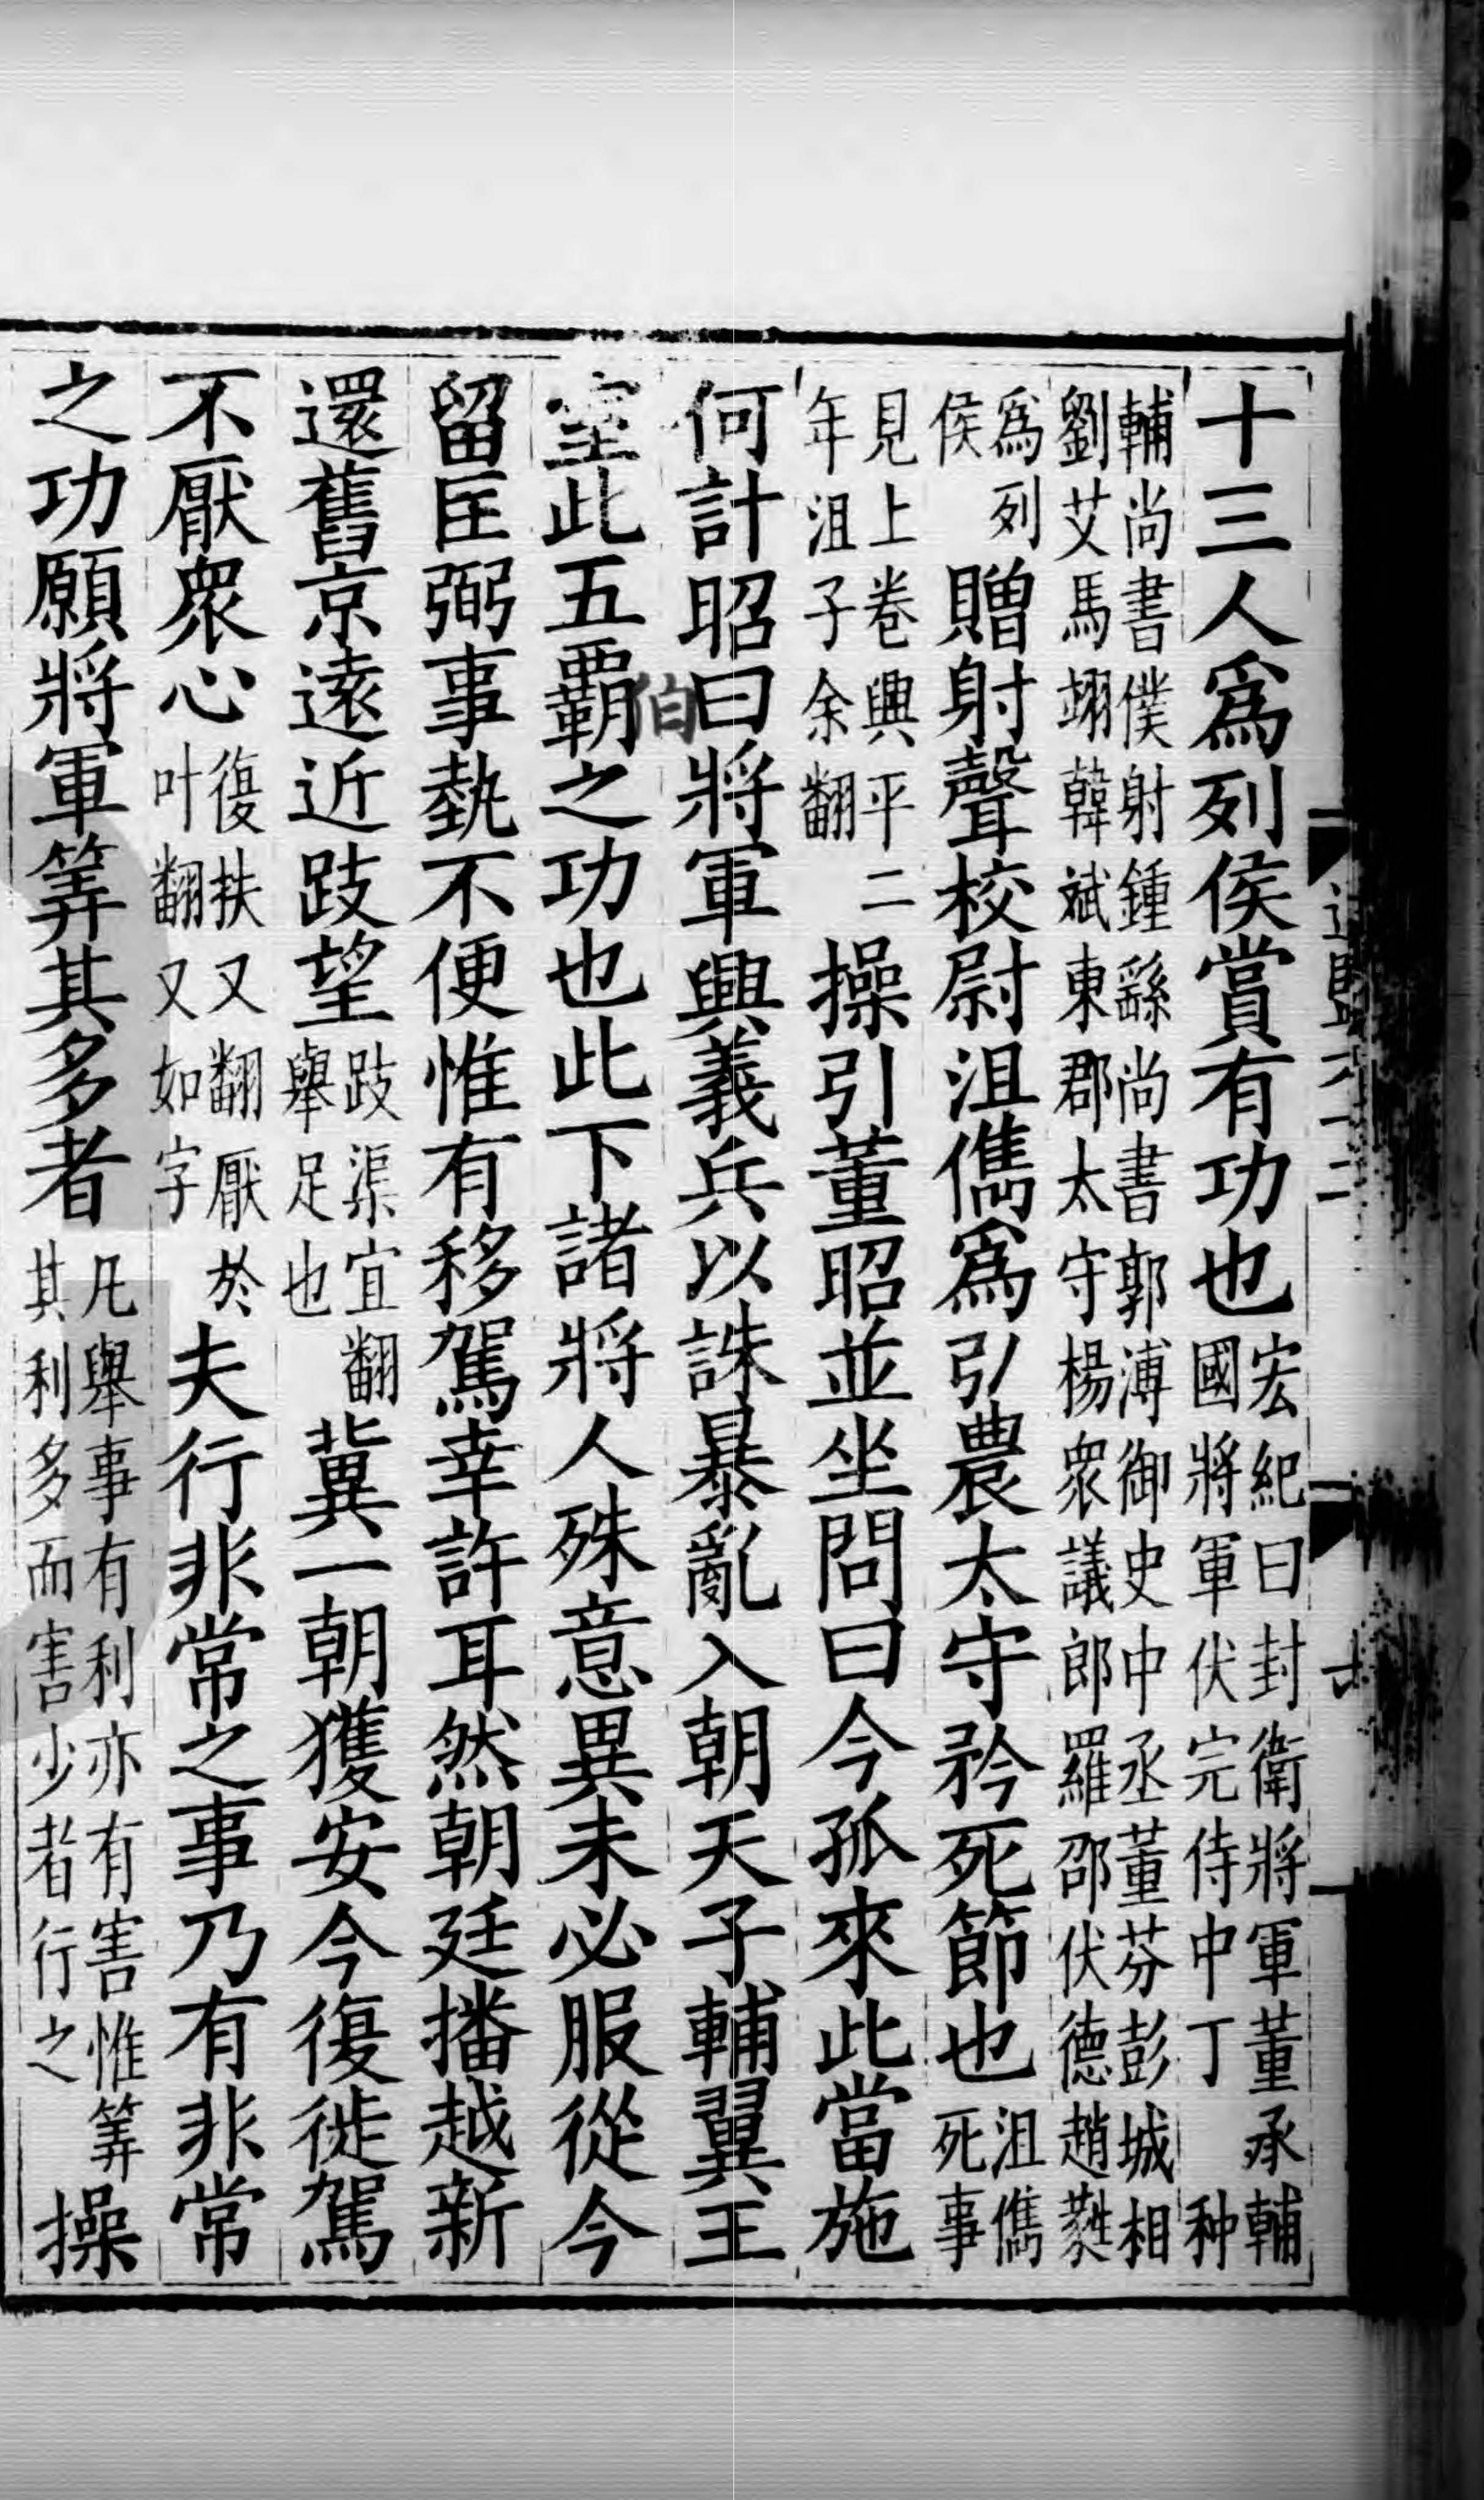 十三人爲列侯賞有功也宏紀曰封衛將軍董承輔國將軍伏完侍中丁种
輔尚書僕射鍾繇尚書郭溥御史中丞董芬彭城相劉艾馮翊韓斌東郡太守楊衆議郎羅邵伏德趙蕤
爲列侯贈射聲校尉沮儁爲弘農太守矜死節也沮儁死事
見上卷興平二年沮子余翻操引董昭並坐問曰今孤來此當施
何計昭曰將軍興義兵以誅暴亂入朝天子輔翼王
室此五霸之功也此下諸將人殊意異未必服從今
伯
留匡弼事埶不便惟有移駕幸許耳然朝廷播越新
還舊京遠近跂望跂渠宜翻舉足也冀一朝獲安今復徙駕
不厭衆心復扶又翻厭於叶翻又如字夫行非常之事乃有非常
之功願將軍筭其多者凡舉事有利亦有害惟筭其利多而害少者行之操